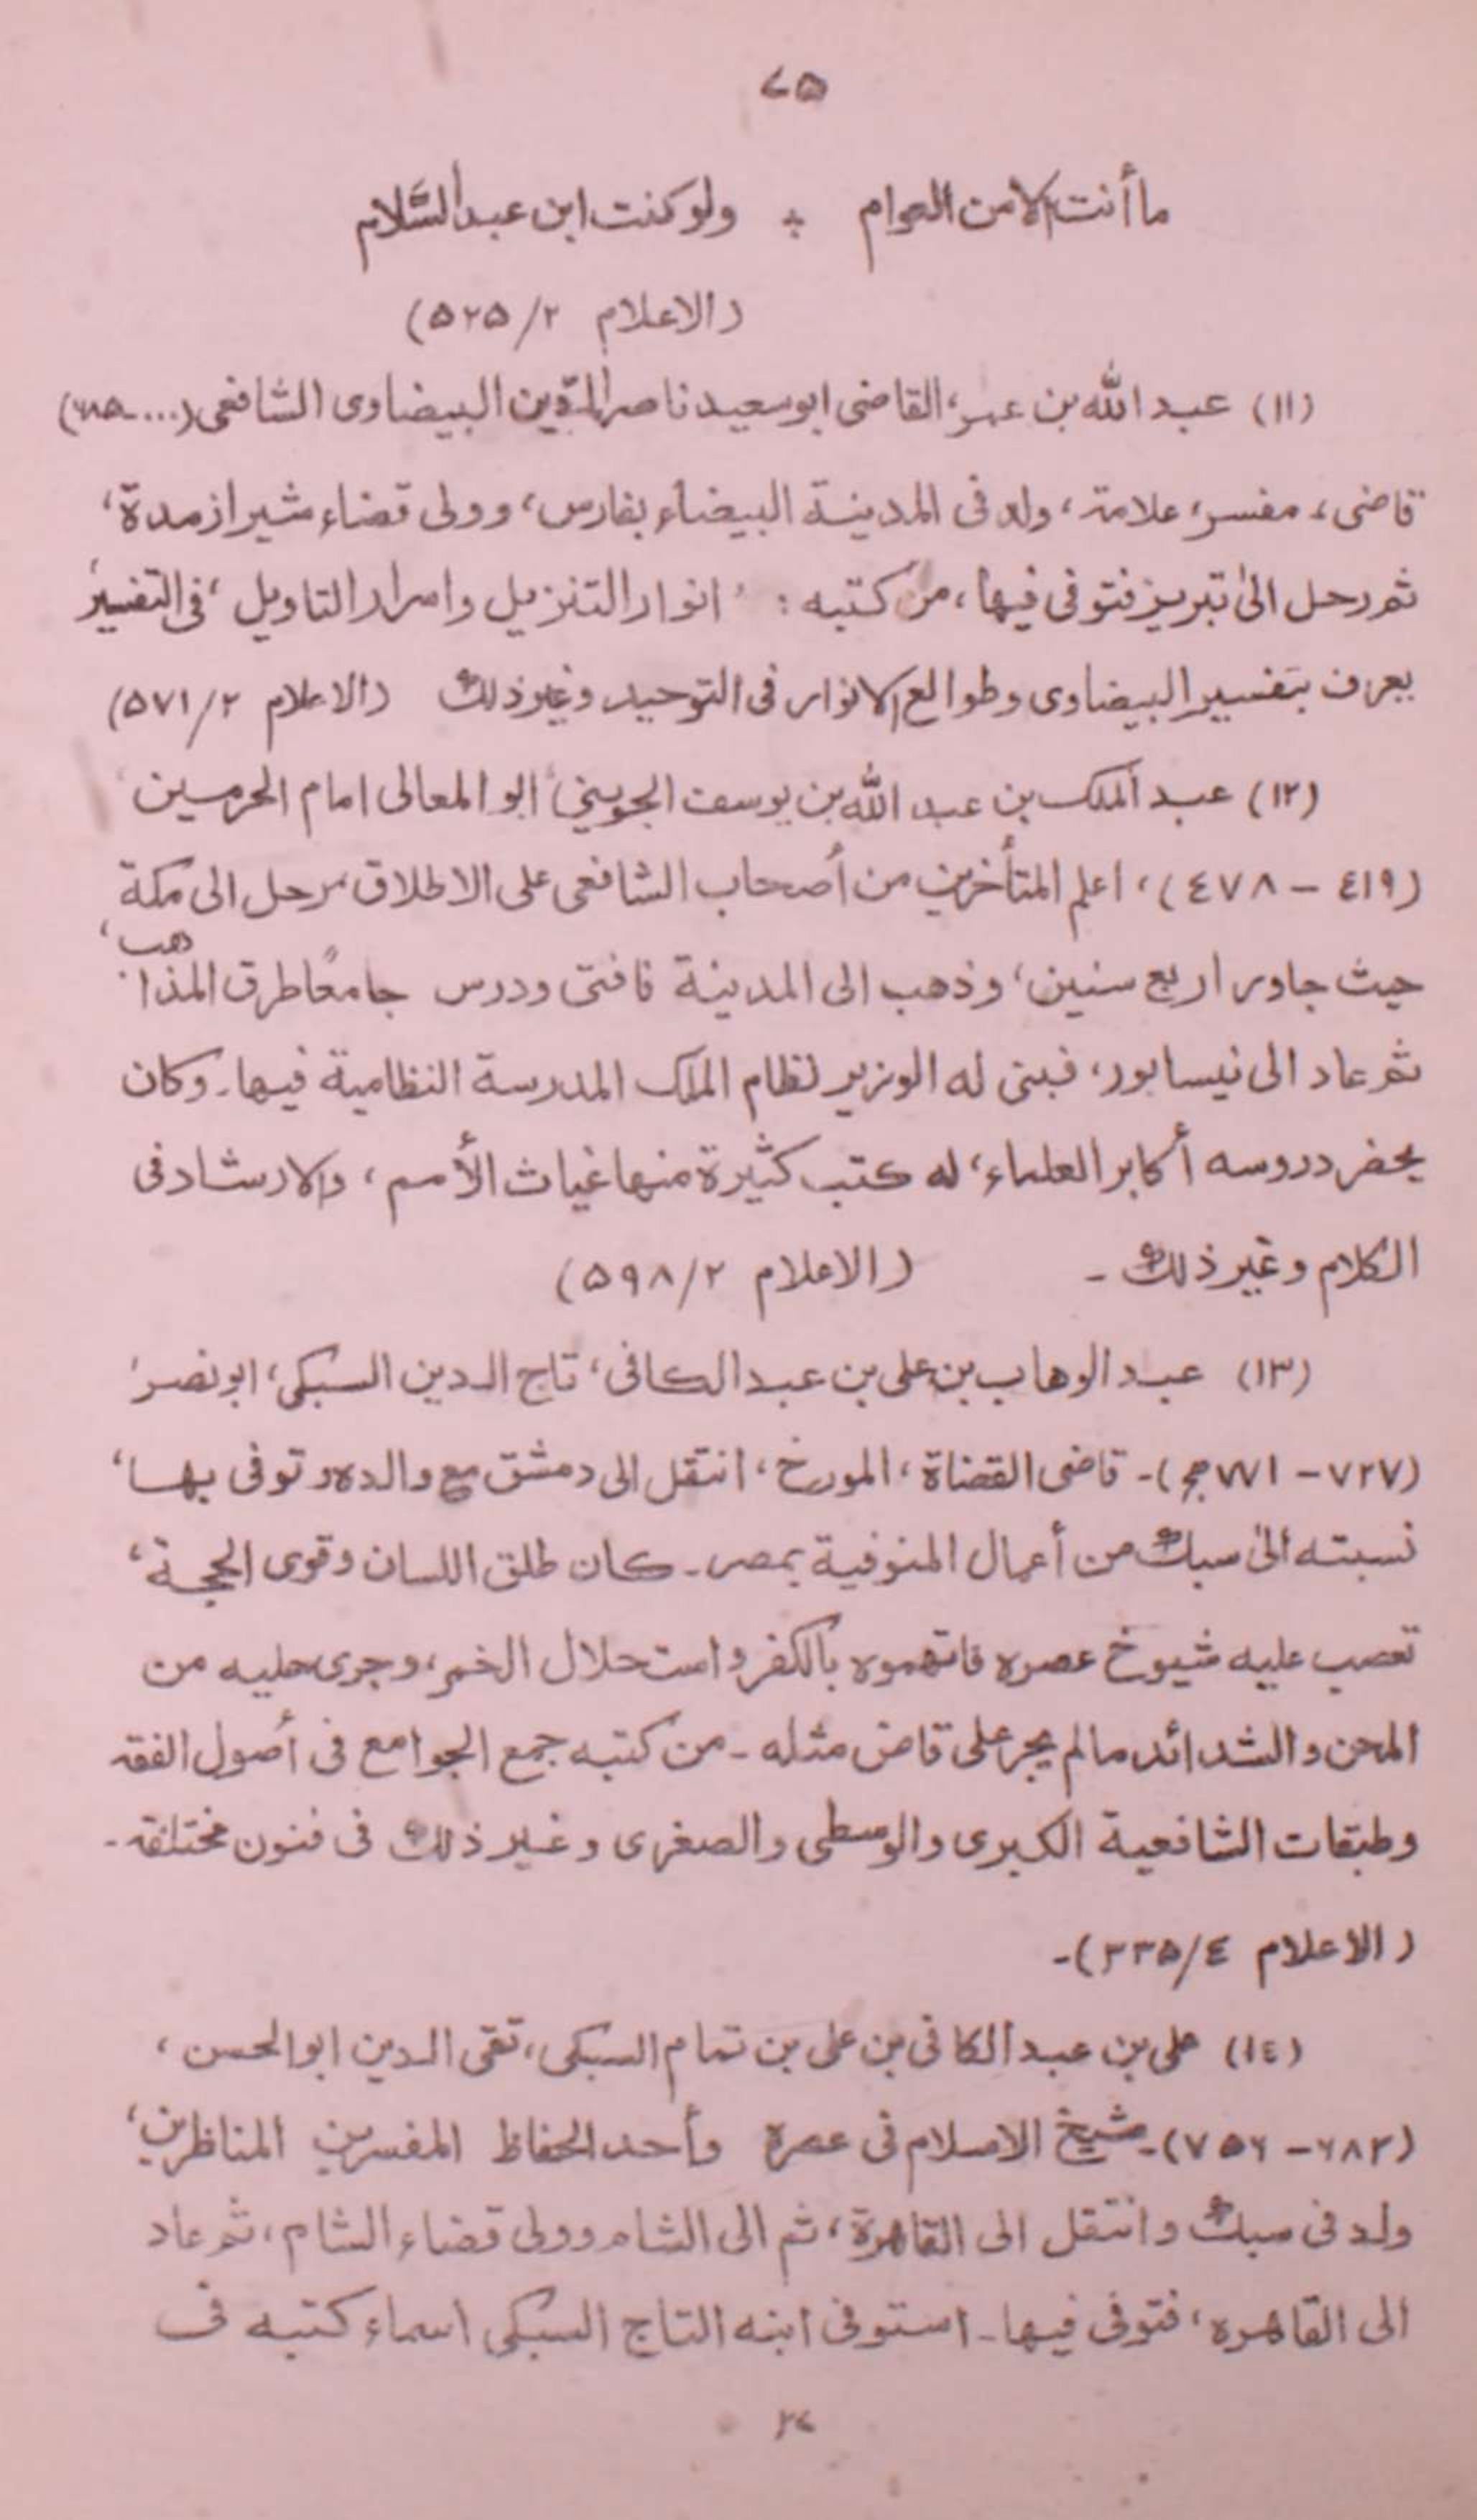 ٧٥
ما أنت الا من العوام ؞ ولو كنت ابن عبد السَّلام
(الاعلام ٥٢٥/٢)
(١١) عبد الله بن عمر، القاضى ابو سعيد ناصر الدّين البيضاوى الشافعى (....ـ٦٨٥)
قاضى، مفسر، علامة، ولد فى المدينة البيضاء بفارس، وولى قضاء شيراز مدة،
ثم رحل الى تبريز فتوفى فيها، من كتبه : انوار التنزيل واسرار التاويل، فى التفسير
يعرف بتفسير البيضاوى وطوالع الانوار فى التوحيد وغير ذلك (الاعلام ٥٧١/٢)
(١٢) عبد الملك بن عبد الله بن يوسف الجويني، ابو المعالى امام الحرمين
(٤١٩ – ٤٧٨)، اعلم المتأخرين من أصحاب الشافعى على الاطلاق، رحل الى مكة
حيث جاور اربع سنين، وذهب الى المدينة فافتى ودرس جامعًا طرق المذاهب،
ثم عاد الى نيسابور، فبنى له الوزير نظام الملك المدرسة النظامية فيها۔ وكان
يحضر دروسه أكابر العلماء، له كتب كثيرة منها غياث الأمم، والارشاد فى
الكلام وغير ذلك ۔ (الاعلام ٥٩٨/٢)
(١٣) عبد الوهاب بن على بن عبد الكافى، تاج الدين السبكى، ابو نصر
(٧٢٧ – ٧٧١ ھ)۔ قاضى القضاة، المورخ، انتقل الى دمشق مع والده و توفى بها،
نسبته الى سبك من أعمال المنوفية بمصر۔ كان طلق اللسان وقوى الحجة،
تعصب عليه شيوخ عصره فاتهموه بالكفر واستحلال الخمر، وجرى عليه من
المحن والشدائد مالم يجر على قاض مثله ۔ من كتبه جمع الجوامع فى أصول الفقه
وطبقات الشافعية الكبرى والوسطى والصغرى وغير ذلك فى فنون مختلفة۔
(الاعلام ٣٣٥/٤)۔
(١٤) على بن عبد الكافى بن على بن تمام السبكى، تقى الدين ابو الحسن،
(٦٨٣ – ٧٥٦)۔ شيخ الاسلام فى عصرة وأحد الحفاظ المفسرين المناظرين،
ولد فى سبك وانتقل الى القاهرة، ثم الى الشام وولى قضاء الشام، ثم عاد
الى القاهرة، فتوفى فيها۔ استوفى ابنه التاج السبكى اسماء كتبه فى